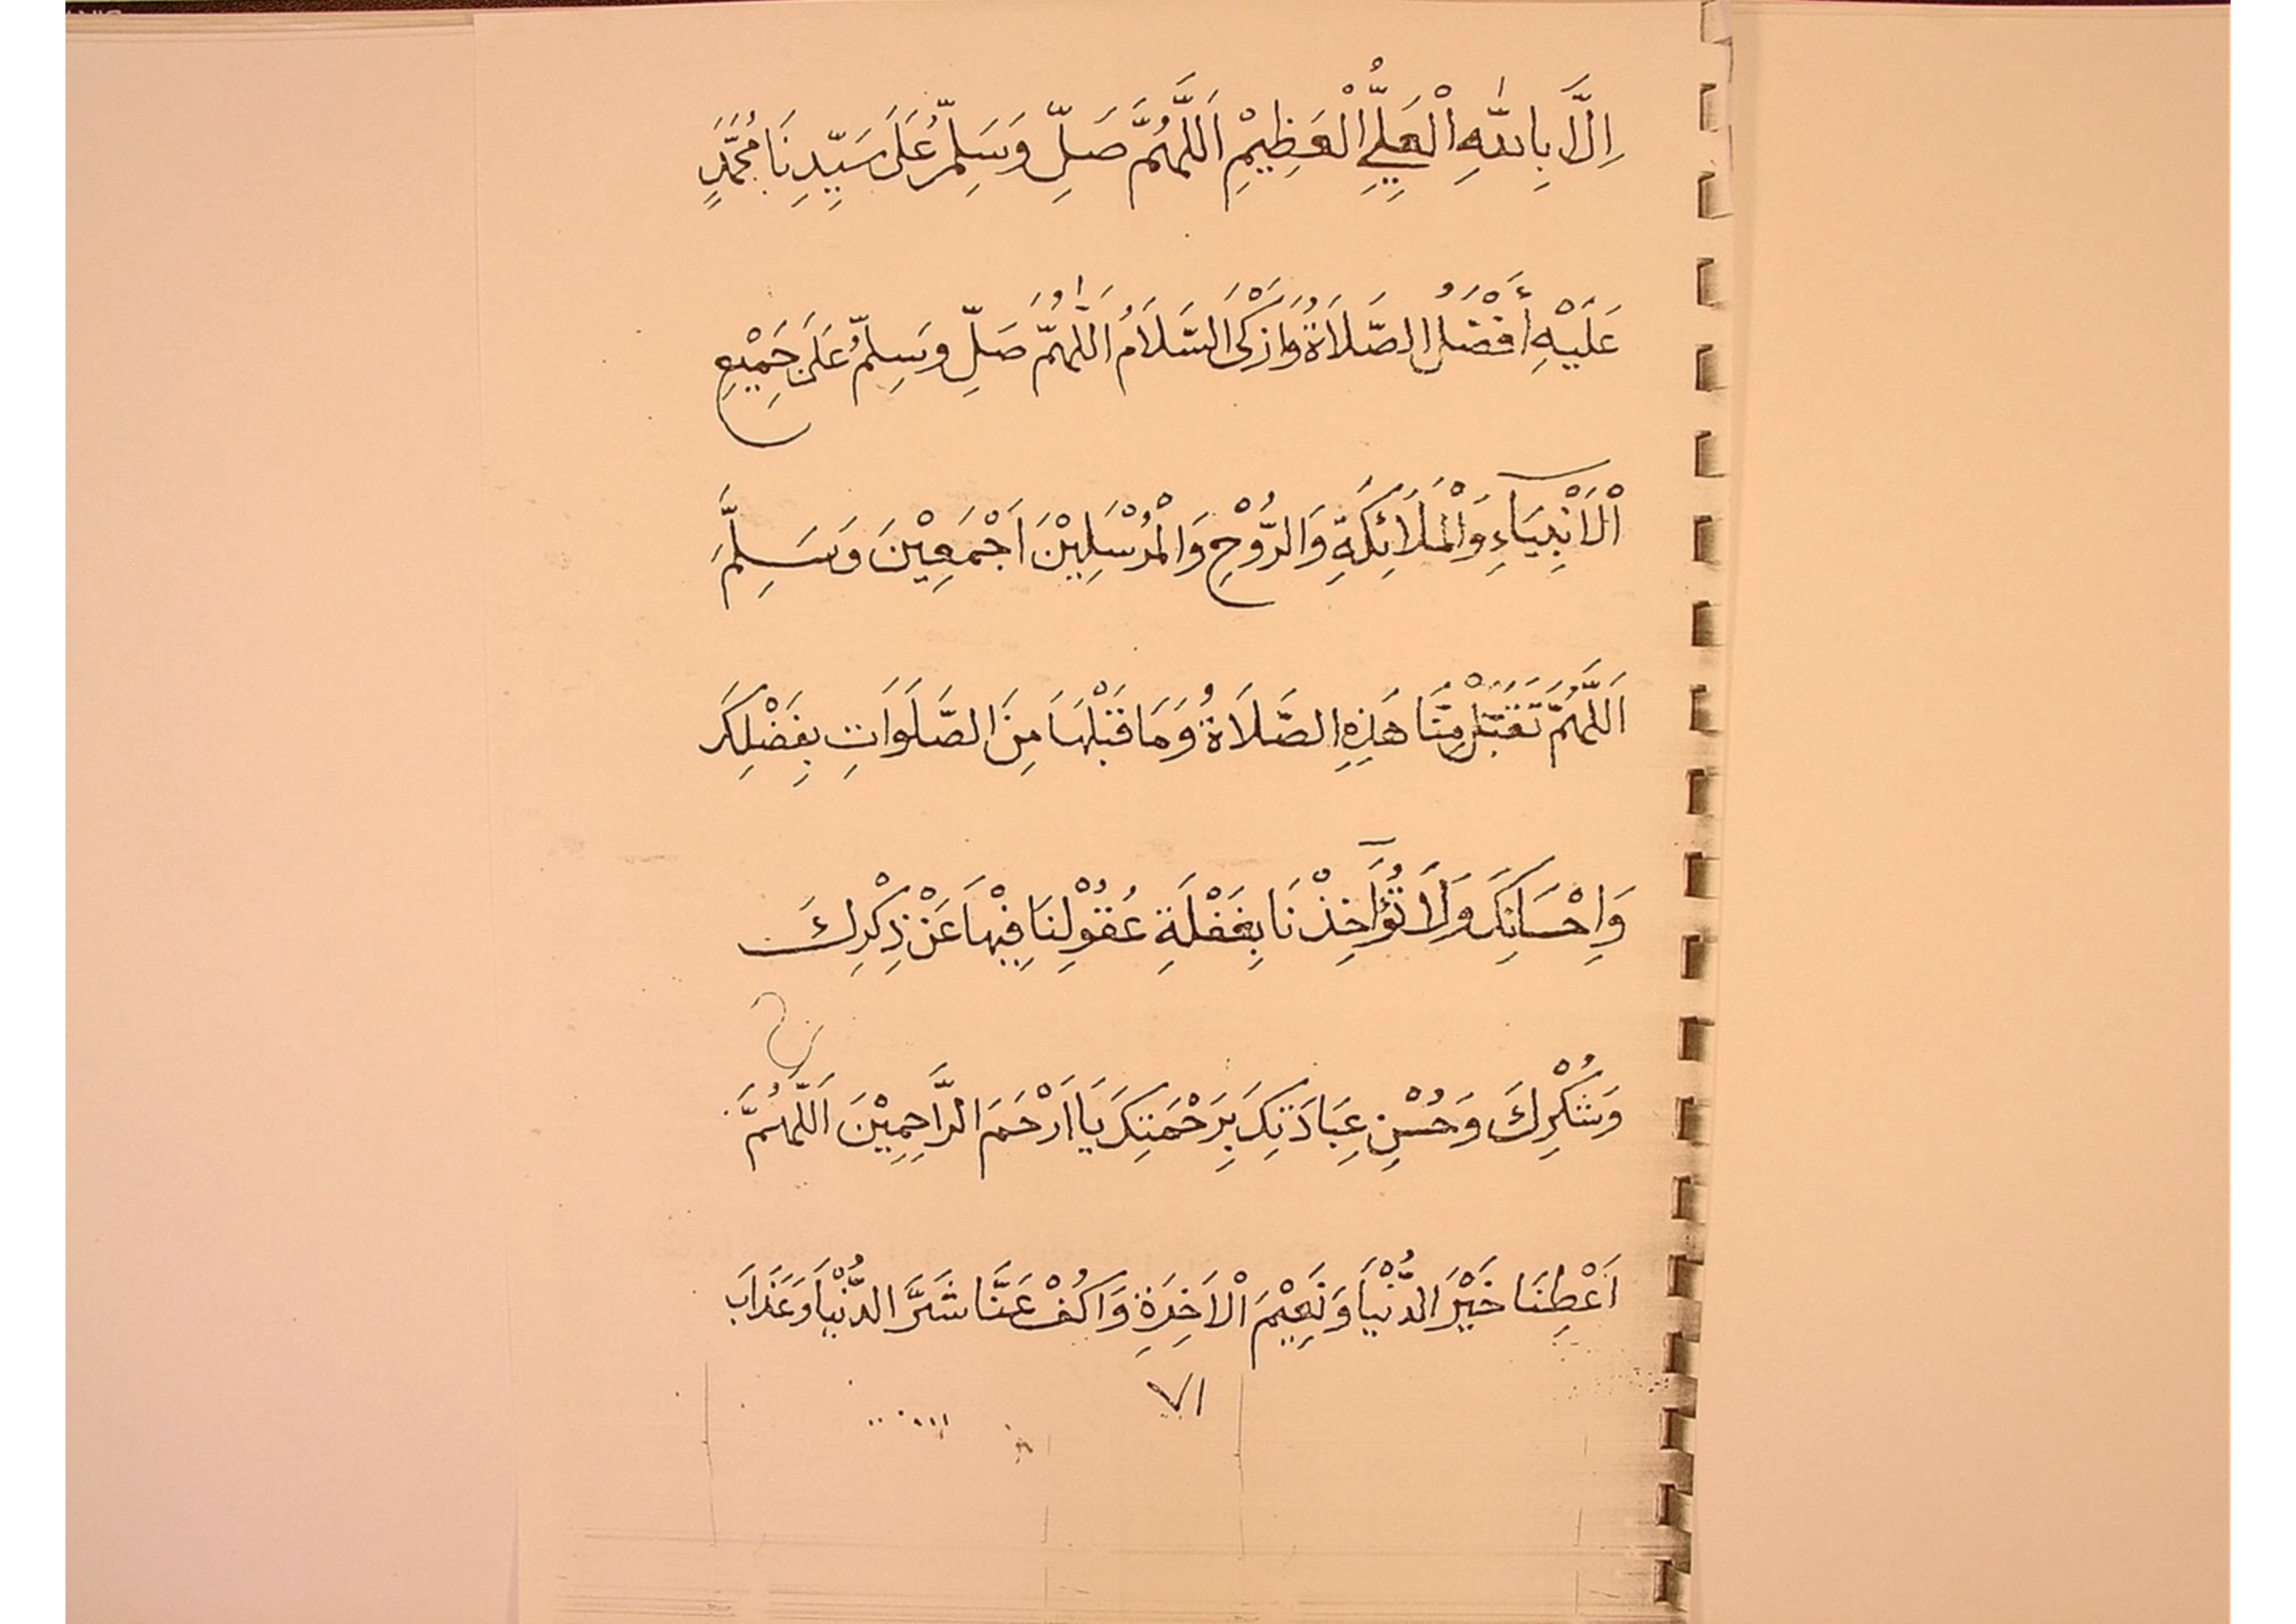 اِلَّا بِاللّٰهِ الْعَلِيِّ الْعَظِيْمِ اَللّٰهُمَّ صَلِّ وَسَلِّمْ عَلَى سَيِّدِنَا مُحَمَّدٍ
عَلَيْهِ أَفْضَلُ الصَّلَاةُ وَازْكَى السَّلَامُ اَللّٰهُمَّ صَلِّ وَسَلِّمْ عَلَى جَمِيْعِ
الْاَنْبِيَآءِ وَالْمَلَائِكَةِ وَالرُّوْحِ وَالْمُرْسَلِيْنَ اَجْمَعِيْنَ وَسَلِّمَ
اَللّٰهُمَّ تَقَبَّلْ مِنَّا هَذِهِ الصَّلَاةُ وَمَا قَبْلَهَا مِنَ الصَّلَوَاتِ بِفَضْلِكَ
وَاِحْسَانِكَ وَلَا تُؤَآخِذْنَا بِغَفْلَةِ عُقُوْلِنَا فِيْهَا عَنْ ذِكْرِكَ
وَشُكْرِكَ وَحُسْنِ عِبَادَتِكَ بِرَحْمَتِكَ يَا اَرْحَمَ الرَّاحِمِيْنَ اَللّٰهُمَّ
اَعْطِنَا خَيْرَ الدُّنْيَا وَنَعِيْمَ الْاَخِرَةِ وَاكُفْ عَنَّا شَرَّ الدُّنْيَا وَعَذَابَ
٧١